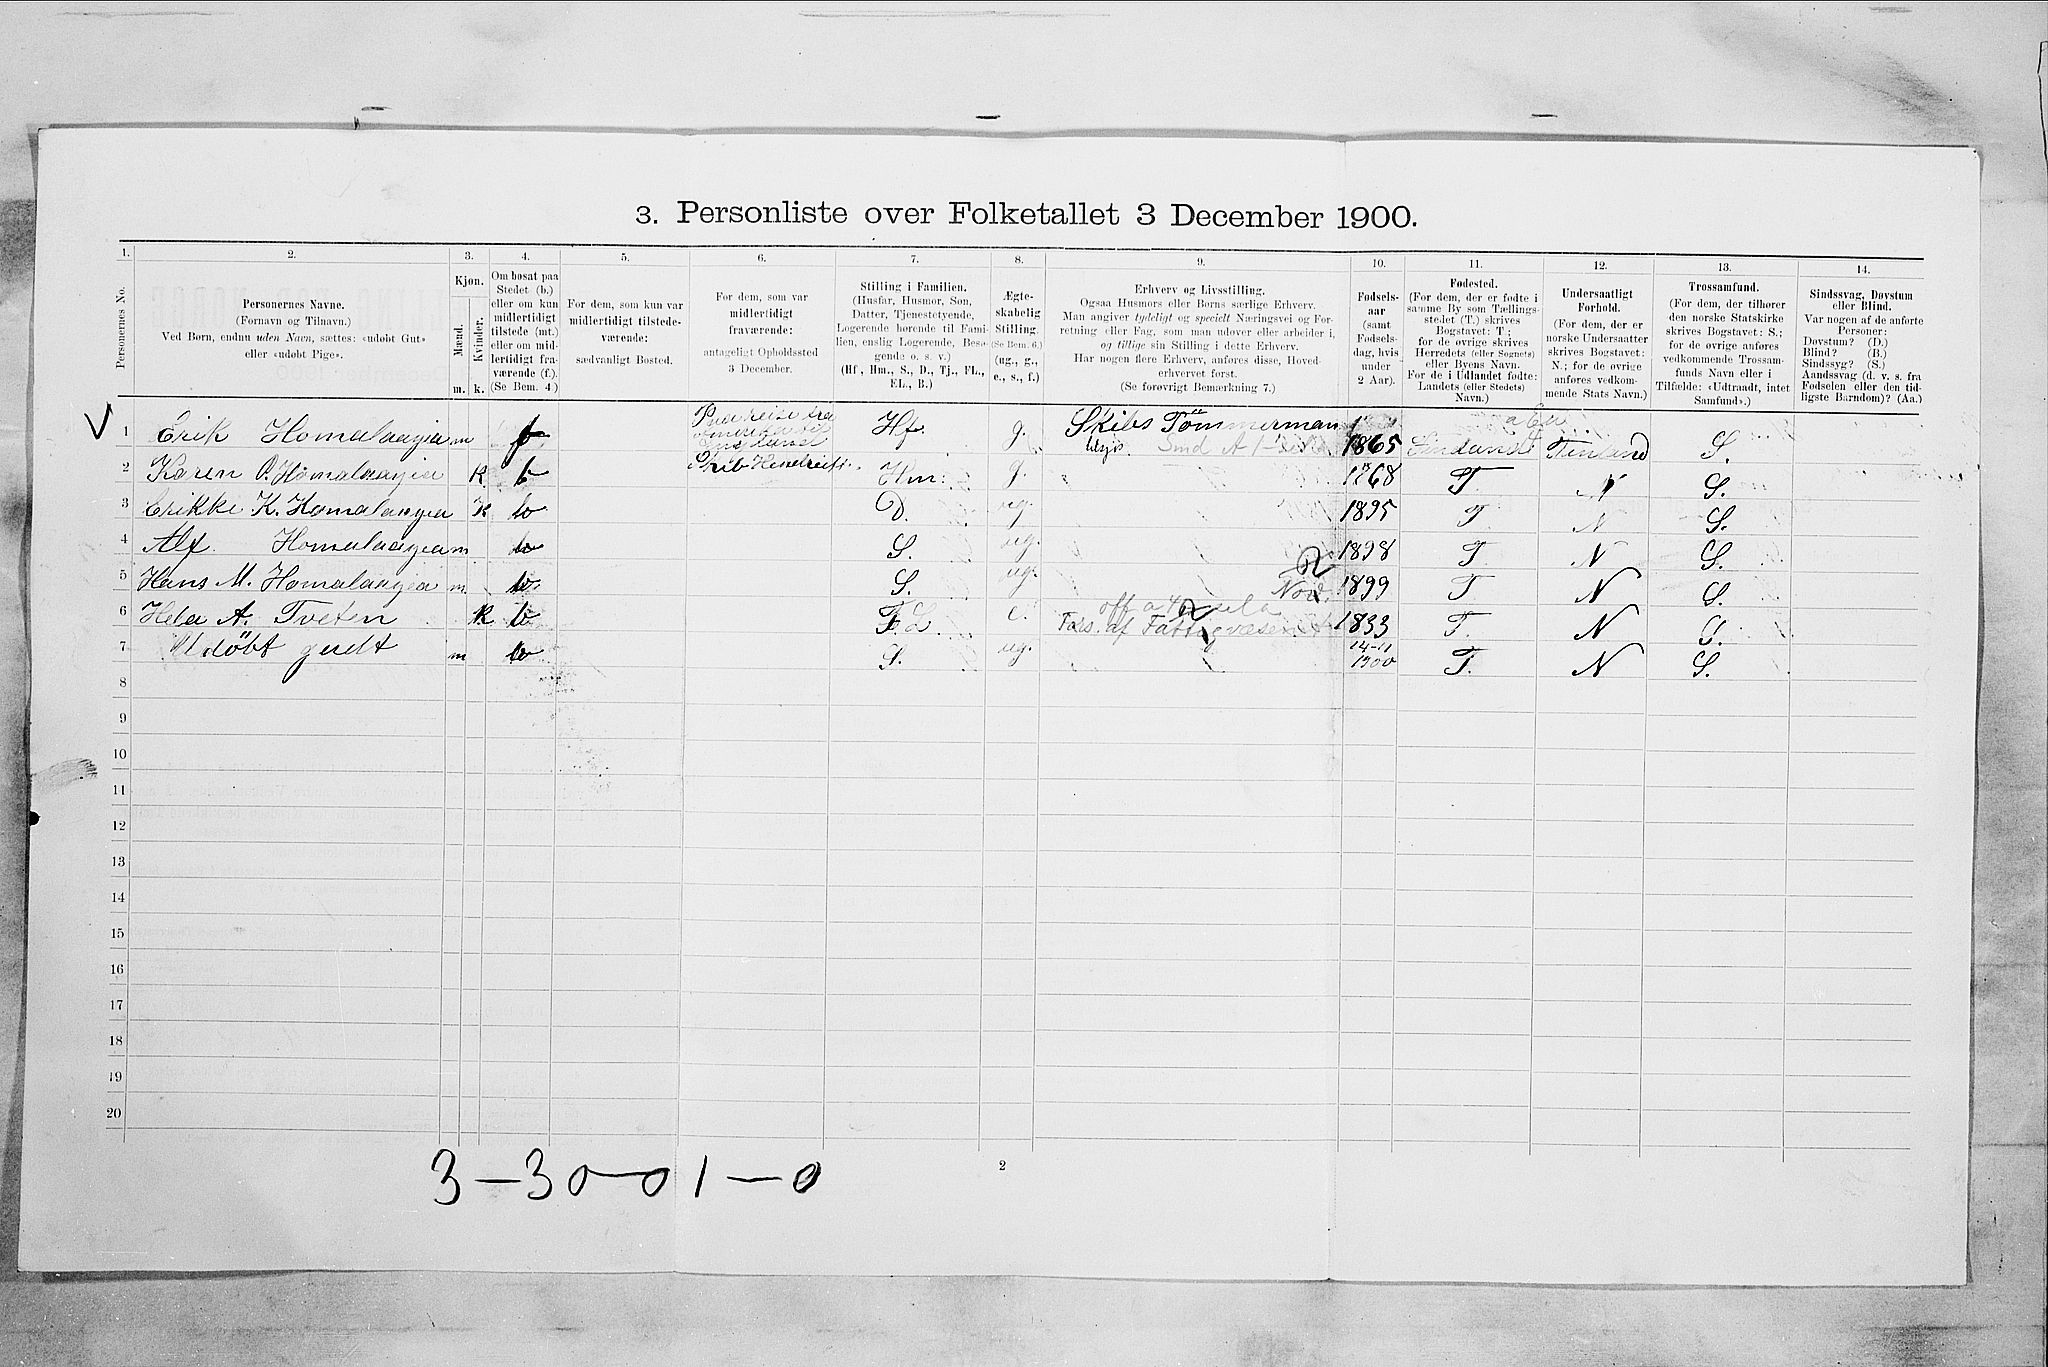 3. Personliste over Folketallet 3 December 1900.
1. 2. 3. 4. 5. 6. 7. 8. 9. 10. 11. 12. 13. 14.
Personernes No.
Personernes Navne.
(Fornavn og Tilnavn.)
Ved Børn, endnu uden Navn, sættes: «udøbt Gut»
eller «udøbt Pige».
Kjøn.
Mænd.
Kvinder.
m. k.
Om bosat paa
Stedet (b.)
eller om kun
midlertidigt
tilstede (mt.)
eller om mid-
lertidigt fra-
værende (f.).
(Se Bem. 4.)
For dem, som kun var
midlertidigt tilstede-
værende:
sædvanligt Bosted.
For dem, som var
midlertidigt
fraværende:
antageligt Opholdssted
3 December.
Stilling i Familien.
(Husfar, Husmor, Søn,
Datter, Tjenestetyende,
Logerende hørende til Fami-
lien, enslig Logerende, Besø-
gende o. s. v.)
(Hf., Hm., S., D., Tj., FL.,
EL., B.)
Ægte-
skabelig
Stilling.
(Se Bem. 6.)
(ug., g.,
e., s., f.)
Erhverv og Livsstilling.
Ogsaa Husmors eller Børns særlige Erhverv.
Man angiver tydeligt og specielt Næringsvei og For-
retning eller Fag, som man udøver eller arbeider i,
og tillige sin Stilling i dette Erhverv.
Har nogen flere Erhverv, anføres disse, Hoved-
erhvervet først.
(Se forøvrigt Bemærkning 7.)
Fødsels-
aar
(samt
Fødsels-
dag, hvis
under
2 Aar).
Fødested.
(For dem, der er fødte i
samme By som Tællings-
stedet (T.) skrives
Bogstavet: T.;
for de øvrige skrives
Herredets (eller Sognets)
eller Byens Navn.
For de i Udlandet fødte:
Landets (eller Stedets)
Navn.)
Undersaatligt
Forhold.
(For dem, der er
norske Undersaatter
skrives Bogstavet:
N.; for de øvrige
anføres vedkom-
mende Stats Navn.)
Trossamfund.
(For dem, der tilhører
den norske Statskirke
skrives Bogstavet: S.;
for de øvrige anføres
vedkommende Trossam-
funds Navn eller i
Tilfælde: «Udtraadt, intet
Samfund».)
Sindssvag, Døvstum
eller Blind.
Var nogen af de anførte
Personer:
Døvstum? (D.)
Blind? (B.)
Sindssyg? (S.)
Aandssvag (d. v. s. fra
Fødselen eller den tid-
ligste Barndom)? (Aa.)
1 Erik Homalaagia m f Hf. g. Skibs Tömmerman 1865 Finland S.
2 Karen O. Homalaagia k b Hm. g. 1868 T. N S.
3 Erikke K. Homalaagia k b D. ug. 1895 T. N S.
4 Alf. Homalaagia m b S. ug. 1898 T. N S.
5 Hans M. Homalaagia m b S. ug. 1899 T. N S.
6 Hela A. Tveten k b F.L. e. Fors. af Fattigvæsenet 1833 T. N S.
7 Udöbt gudt m b S. ug. 14-11 1900 T. N S.
8
9
10
11
12
13
14
15
16
17
18
19
20
3-30-01-0
2